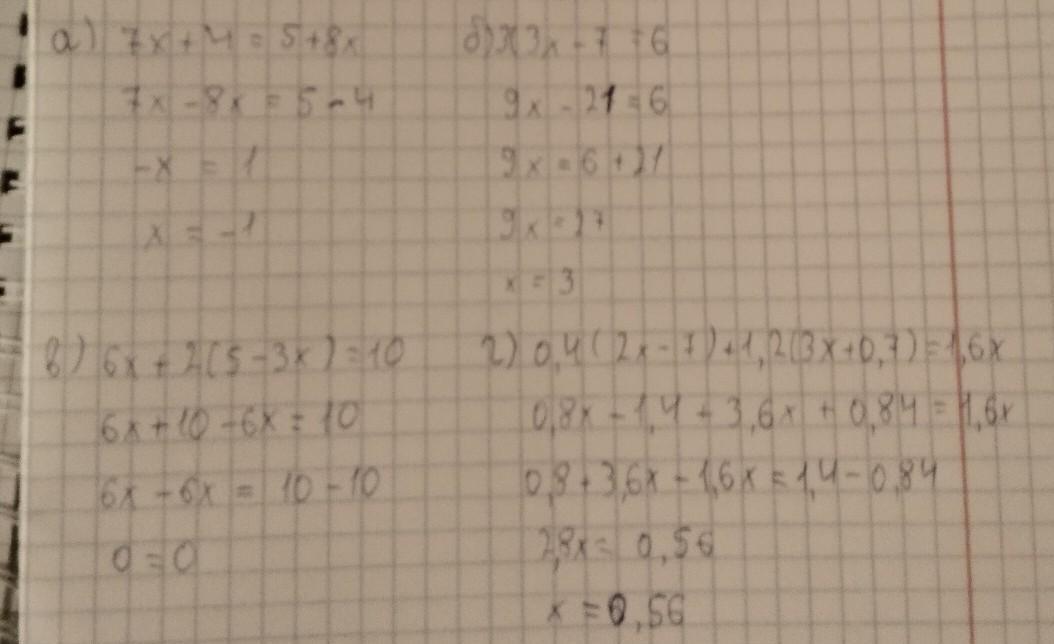 а) 7x+4=5+8x
7x-8x=5-4
-x=1
x=-1
б) 3x-7=6
9x-21=6
9x=6+21
9x=27
x=3
в) 6x+2(5-3x)=10
6x+10-6x=10
6x-6x=10-10
0=0
г) 0,4(2x-7)+1,2(3x+0,7)=1,6x
0,8x-1,4+3,6x+0,84=1,6x
0,8+3,6x-1,6x=1,4-0,84
2,8x=0,56
x=0,56